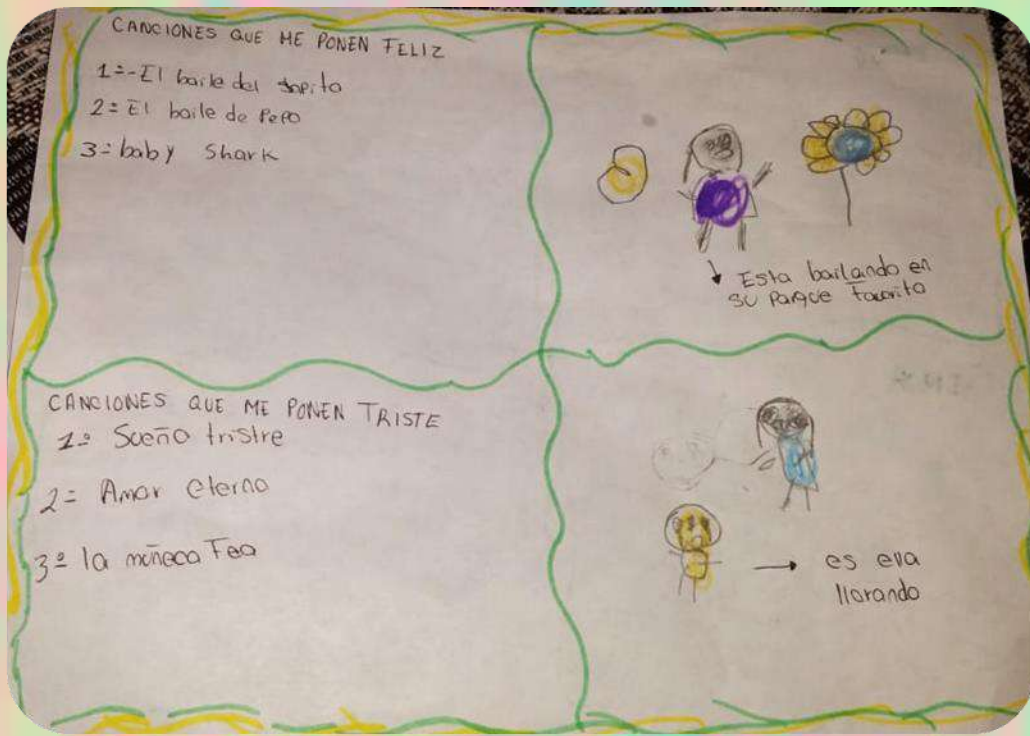 CANCIONES QUE ME PONEN FELIZ
1=-El baile del sapito
2= El baile de Pepo
3= baby shark
Esta bailando en
su parque favorito
CANCIONES QUE ME PONEN TRISTE
1= Sueño tristre
2= Amor eterno
3= la muñeca Fea
es ella
llorando